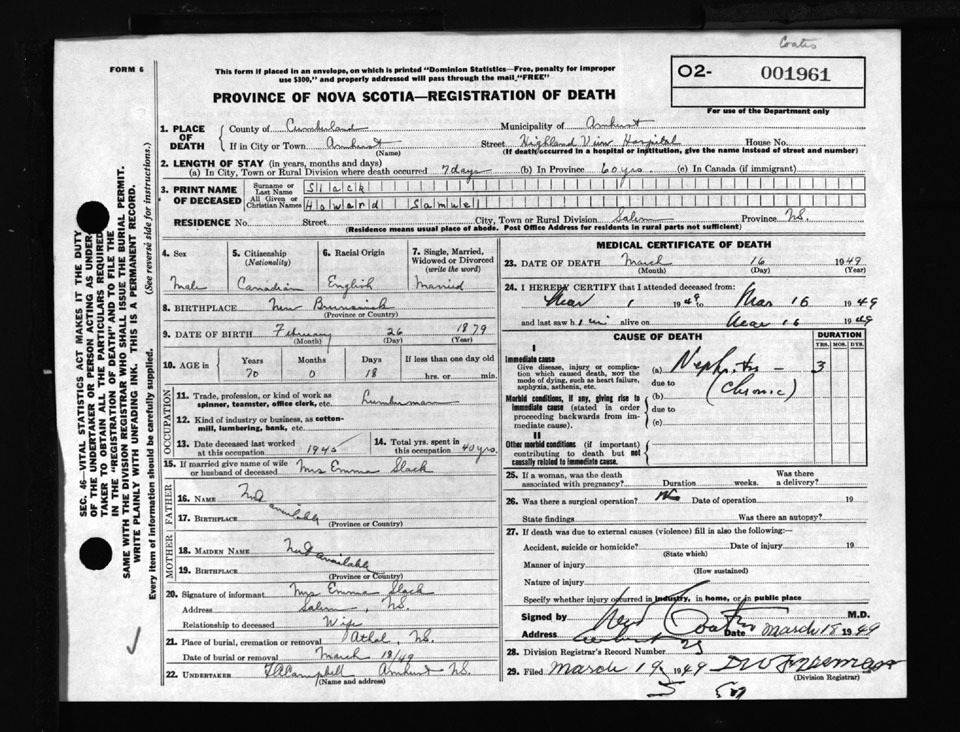 Coates
FORM 6
This form if placed in an envelope, on which is printed "Dominion Statistics—Free, penalty for improper
use $300," and properly addressed will pass through the mail "FREE"
O2- 001961
For use of the Department only
PROVINCE OF NOVA SCOTIA—REGISTRATION OF DEATH
1. PLACE OF DEATH
County of Cumberland Municipality of Amherst
If in City or Town Amherst Street Highland View Hospital House No.
(Name) (If death occurred in a hospital or institution, give the name instead of street and number)
2. LENGTH OF STAY (in years, months and days)
(a) In City, Town or Rural Division where death occurred 7 days (b) In Province 60 yrs. (c) In Canada (if immigrant)
3. PRINT NAME OF DECEASED
Surname or Last Name Slack
All Given or Christian Names Howard Samuel
RESIDENCE No. Street City, Town or Rural Division Salem Province N.S.
(Residence means usual place of abode. Post Office Address for residents in rural parts not sufficient)
4. Sex Male
5. Citizenship (Nationality) Canadian
6. Racial Origin English
7. Single, Married, Widowed or Divorced (write the word) Married
8. BIRTHPLACE New Brunswick
(Province or Country)
9. DATE OF BIRTH February 26 1879
(Month) (Day) (Year)
10. AGE in Years Months Days If less than one day old
70 0 18 hrs. or min.
OCCUPATION
11. Trade, profession, or kind of work as spinner, teamster, office clerk, etc. Lumberman
12. Kind of industry or business, as cotton-mill, lumbering, bank, etc.
13. Date deceased last worked at this occupation 1945
14. Total yrs. spent in this occupation 40 yrs.
15. If married give name of wife or husband of deceased Mrs Emma Slack
FATHER
16. NAME Not
17. BIRTHPLACE available
(Province or Country)
MOTHER
18. MAIDEN NAME Not available
19. BIRTHPLACE
(Province or Country)
20. Signature of informant Mrs Emma Slack
Address Salem, N.S.
Relationship to deceased Wife
21. Place of burial, cremation or removal Athol, N.S.
Date of burial or removal March 18/49
22. UNDERTAKER Campbell Amherst N.S.
(Name and address)
MEDICAL CERTIFICATE OF DEATH
23. DATE OF DEATH March 16 1949
(Month) (Day) (Year)
24. I HEREBY CERTIFY that I attended deceased from:
Mar 1 1949 to Mar 16 1949
and last saw him alive on Mar 16 1949
CAUSE OF DEATH
DURATION
YRS. MOS. DYS.
I
Immediate cause
Give disease, injury or complication which caused death, not the mode of dying, such as heart failure, asphyxia, asthenia, etc.
(a) Nephritis – 3
due to (Chronic)
Morbid conditions, if any, giving rise to immediate cause (stated in order proceeding backwards from immediate cause).
(b)
due to
(c)
II
Other morbid conditions (if important) contributing to death but not causally related to immediate cause.
25. If a woman, was the death associated with pregnancy? Duration weeks. Was there a delivery?
26. Was there a surgical operation? No Date of operation 19
State findings Was there an autopsy?
27. If death was due to external causes (violence) fill in also the following:—
Accident, suicide or homicide? Date of injury 19
(State which)
Manner of injury
(How sustained)
Nature of injury
Specify whether injury occurred in industry, in home, or in public place
Signed by Coates M.D.
Address Amherst Date March 18 1949
28. Division Registrar's Record Number 25
29. Filed March 19 1949 D W Freeman
(Division Registrar)
SEC. 46—VITAL STATISTICS ACT MAKES IT THE DUTY
OF THE UNDERTAKER OR PERSON ACTING AS UNDER-
TAKER TO OBTAIN ALL THE PARTICULARS REQUIRED
IN THE "REGISTRATION OF DEATH" AND TO FILE THE
SAME WITH THE DIVISION REGISTRAR WHO SHALL ISSUE THE BURIAL PERMIT.
WRITE PLAINLY WITH UNFADING INK. THIS IS A PERMANENT RECORD.
Every item of information should be carefully supplied. (See reverse side for instructions.)